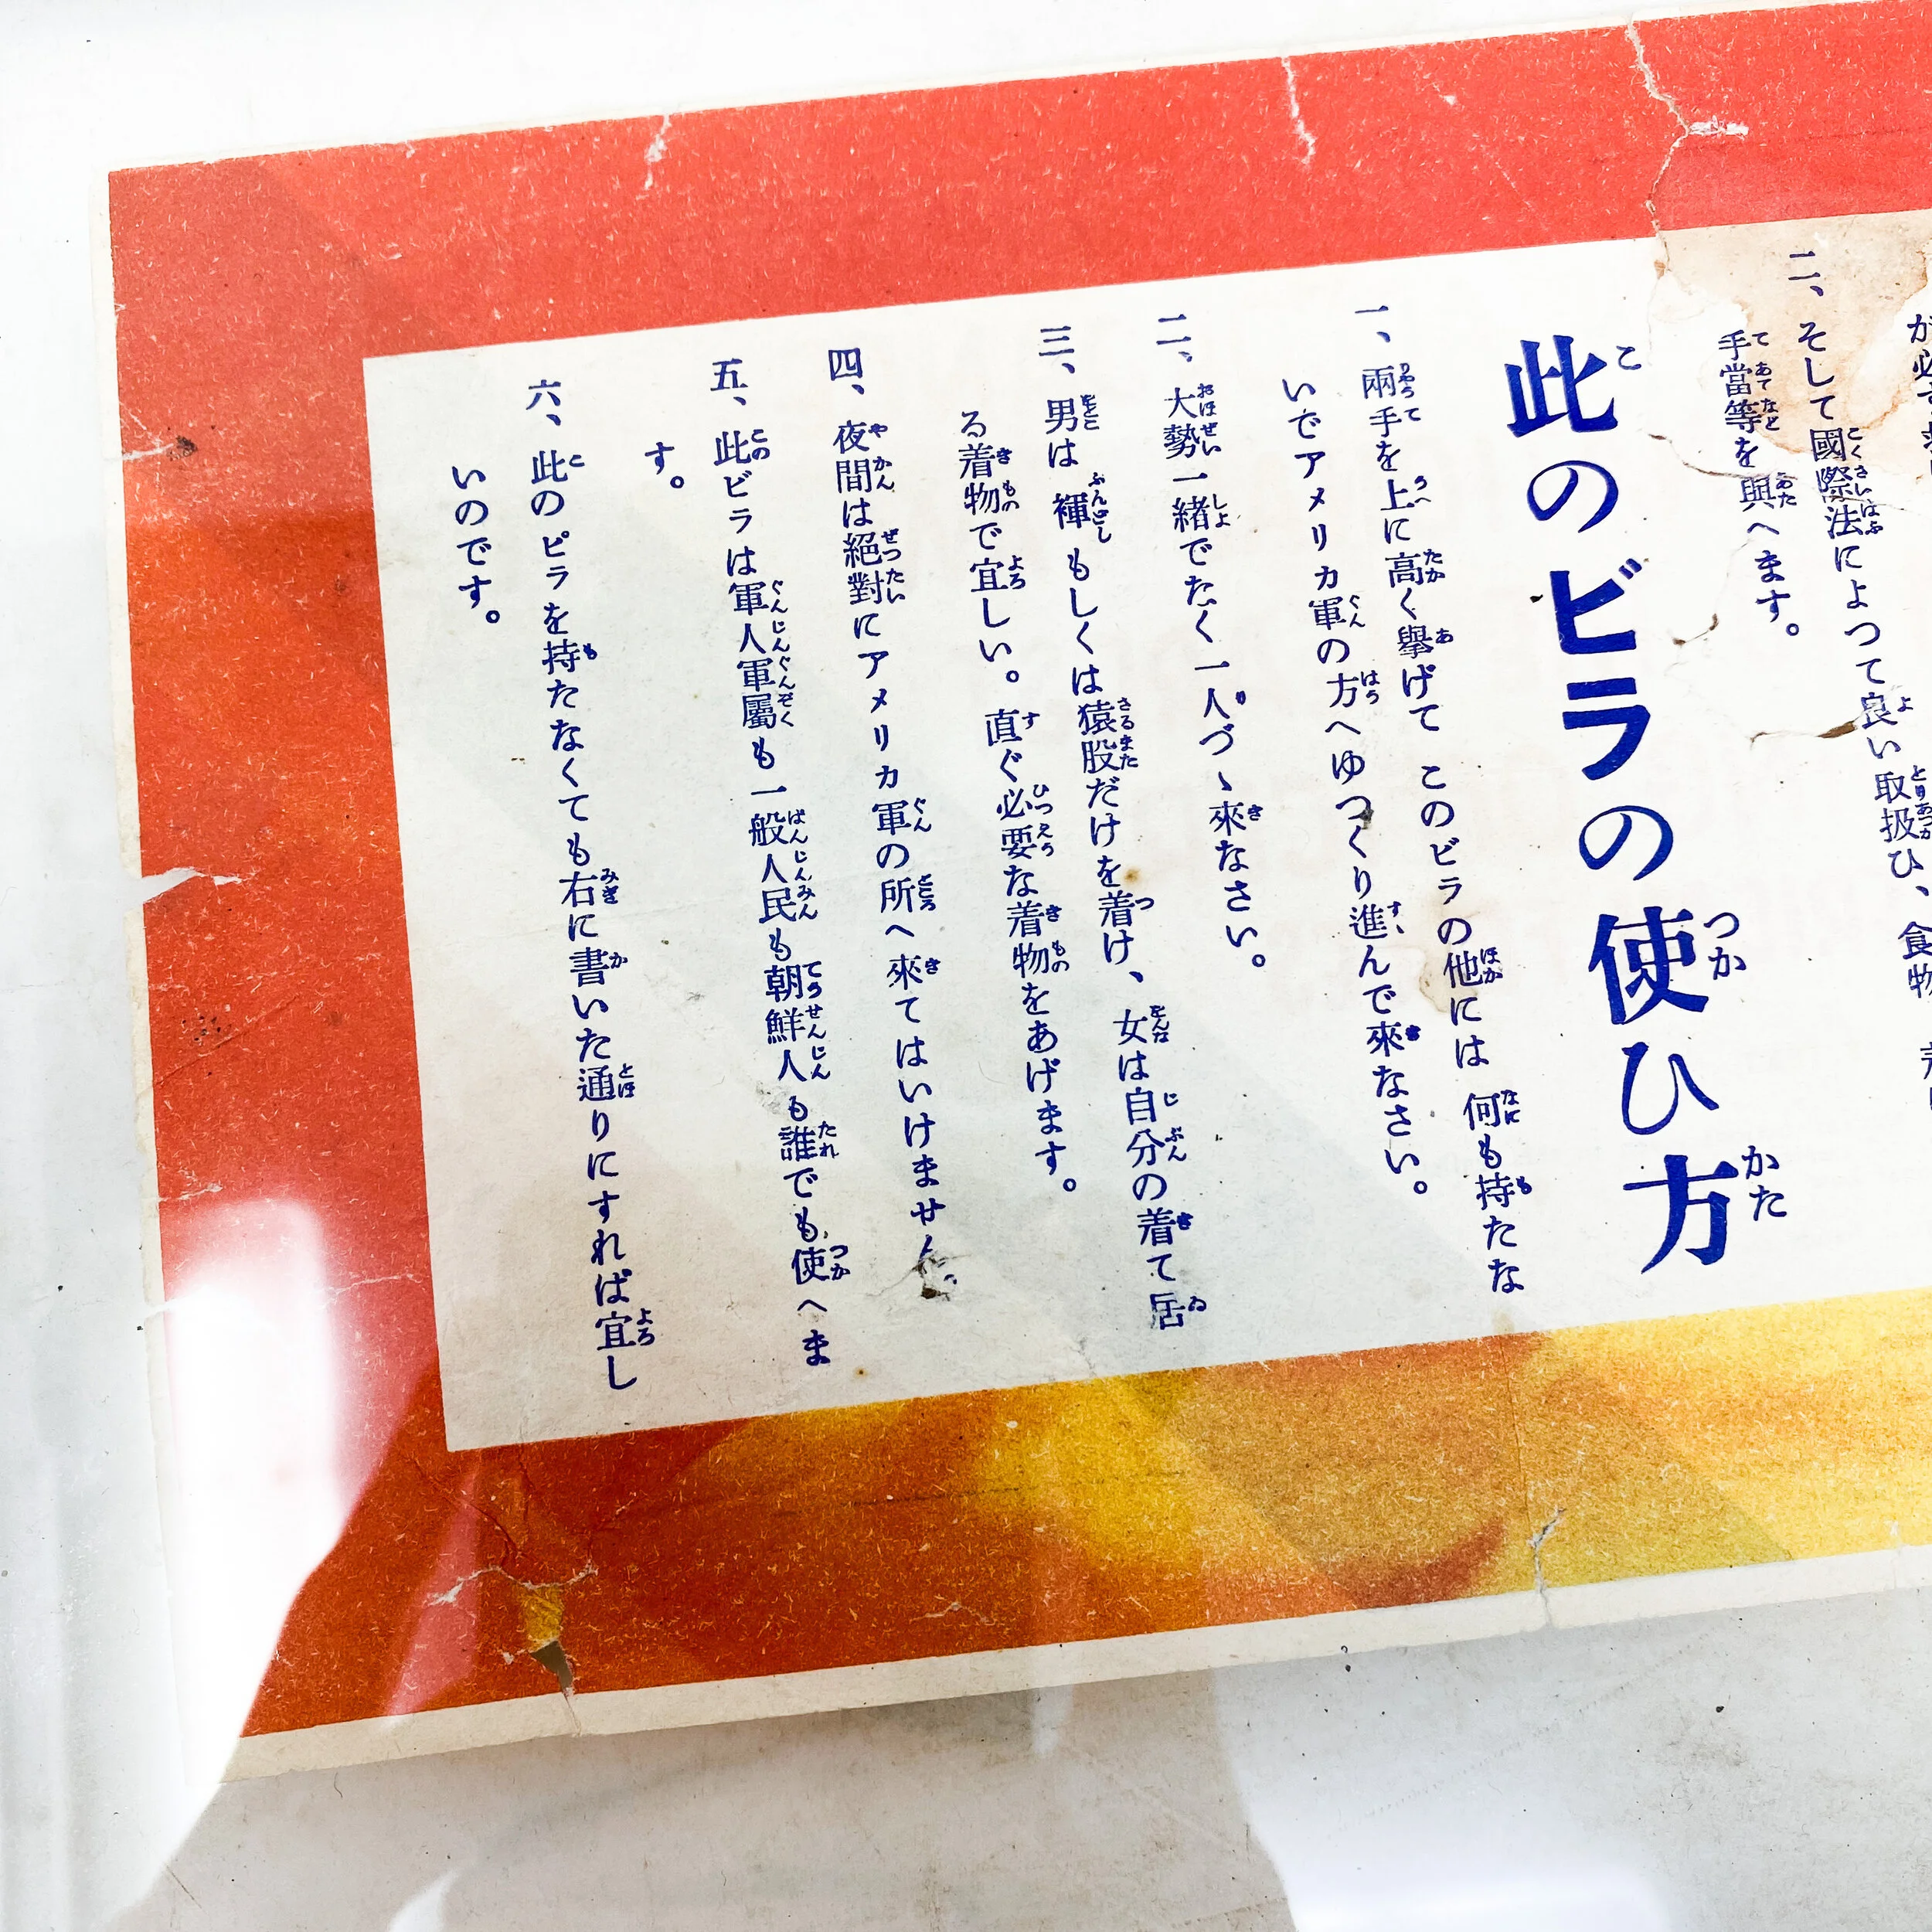 が必ず
二、そして國際法によつて良い取扱ひ、食物
手當等を與へます。
此のビラの使ひ方
一、兩手を上に高く擧げて このビラの他には 何も持たな
いでアメリカ軍の方へゆつくり進んで來なさい。
二、大勢一緒でなく一人づゝ來なさい。
三、男は 褌 もしくは猿股だけを着け、女は自分の着て居
る着物で宜しい。直ぐ必要な着物をあげます。
四、夜間は絕對にアメリカ軍の所へ來てはいけません。
五、此ビラは軍人軍屬も一般人民も朝鮮人も誰でも使へま
す。
六、此のビラを持たなくても右に書いた通りにすれば宜し
いのです。